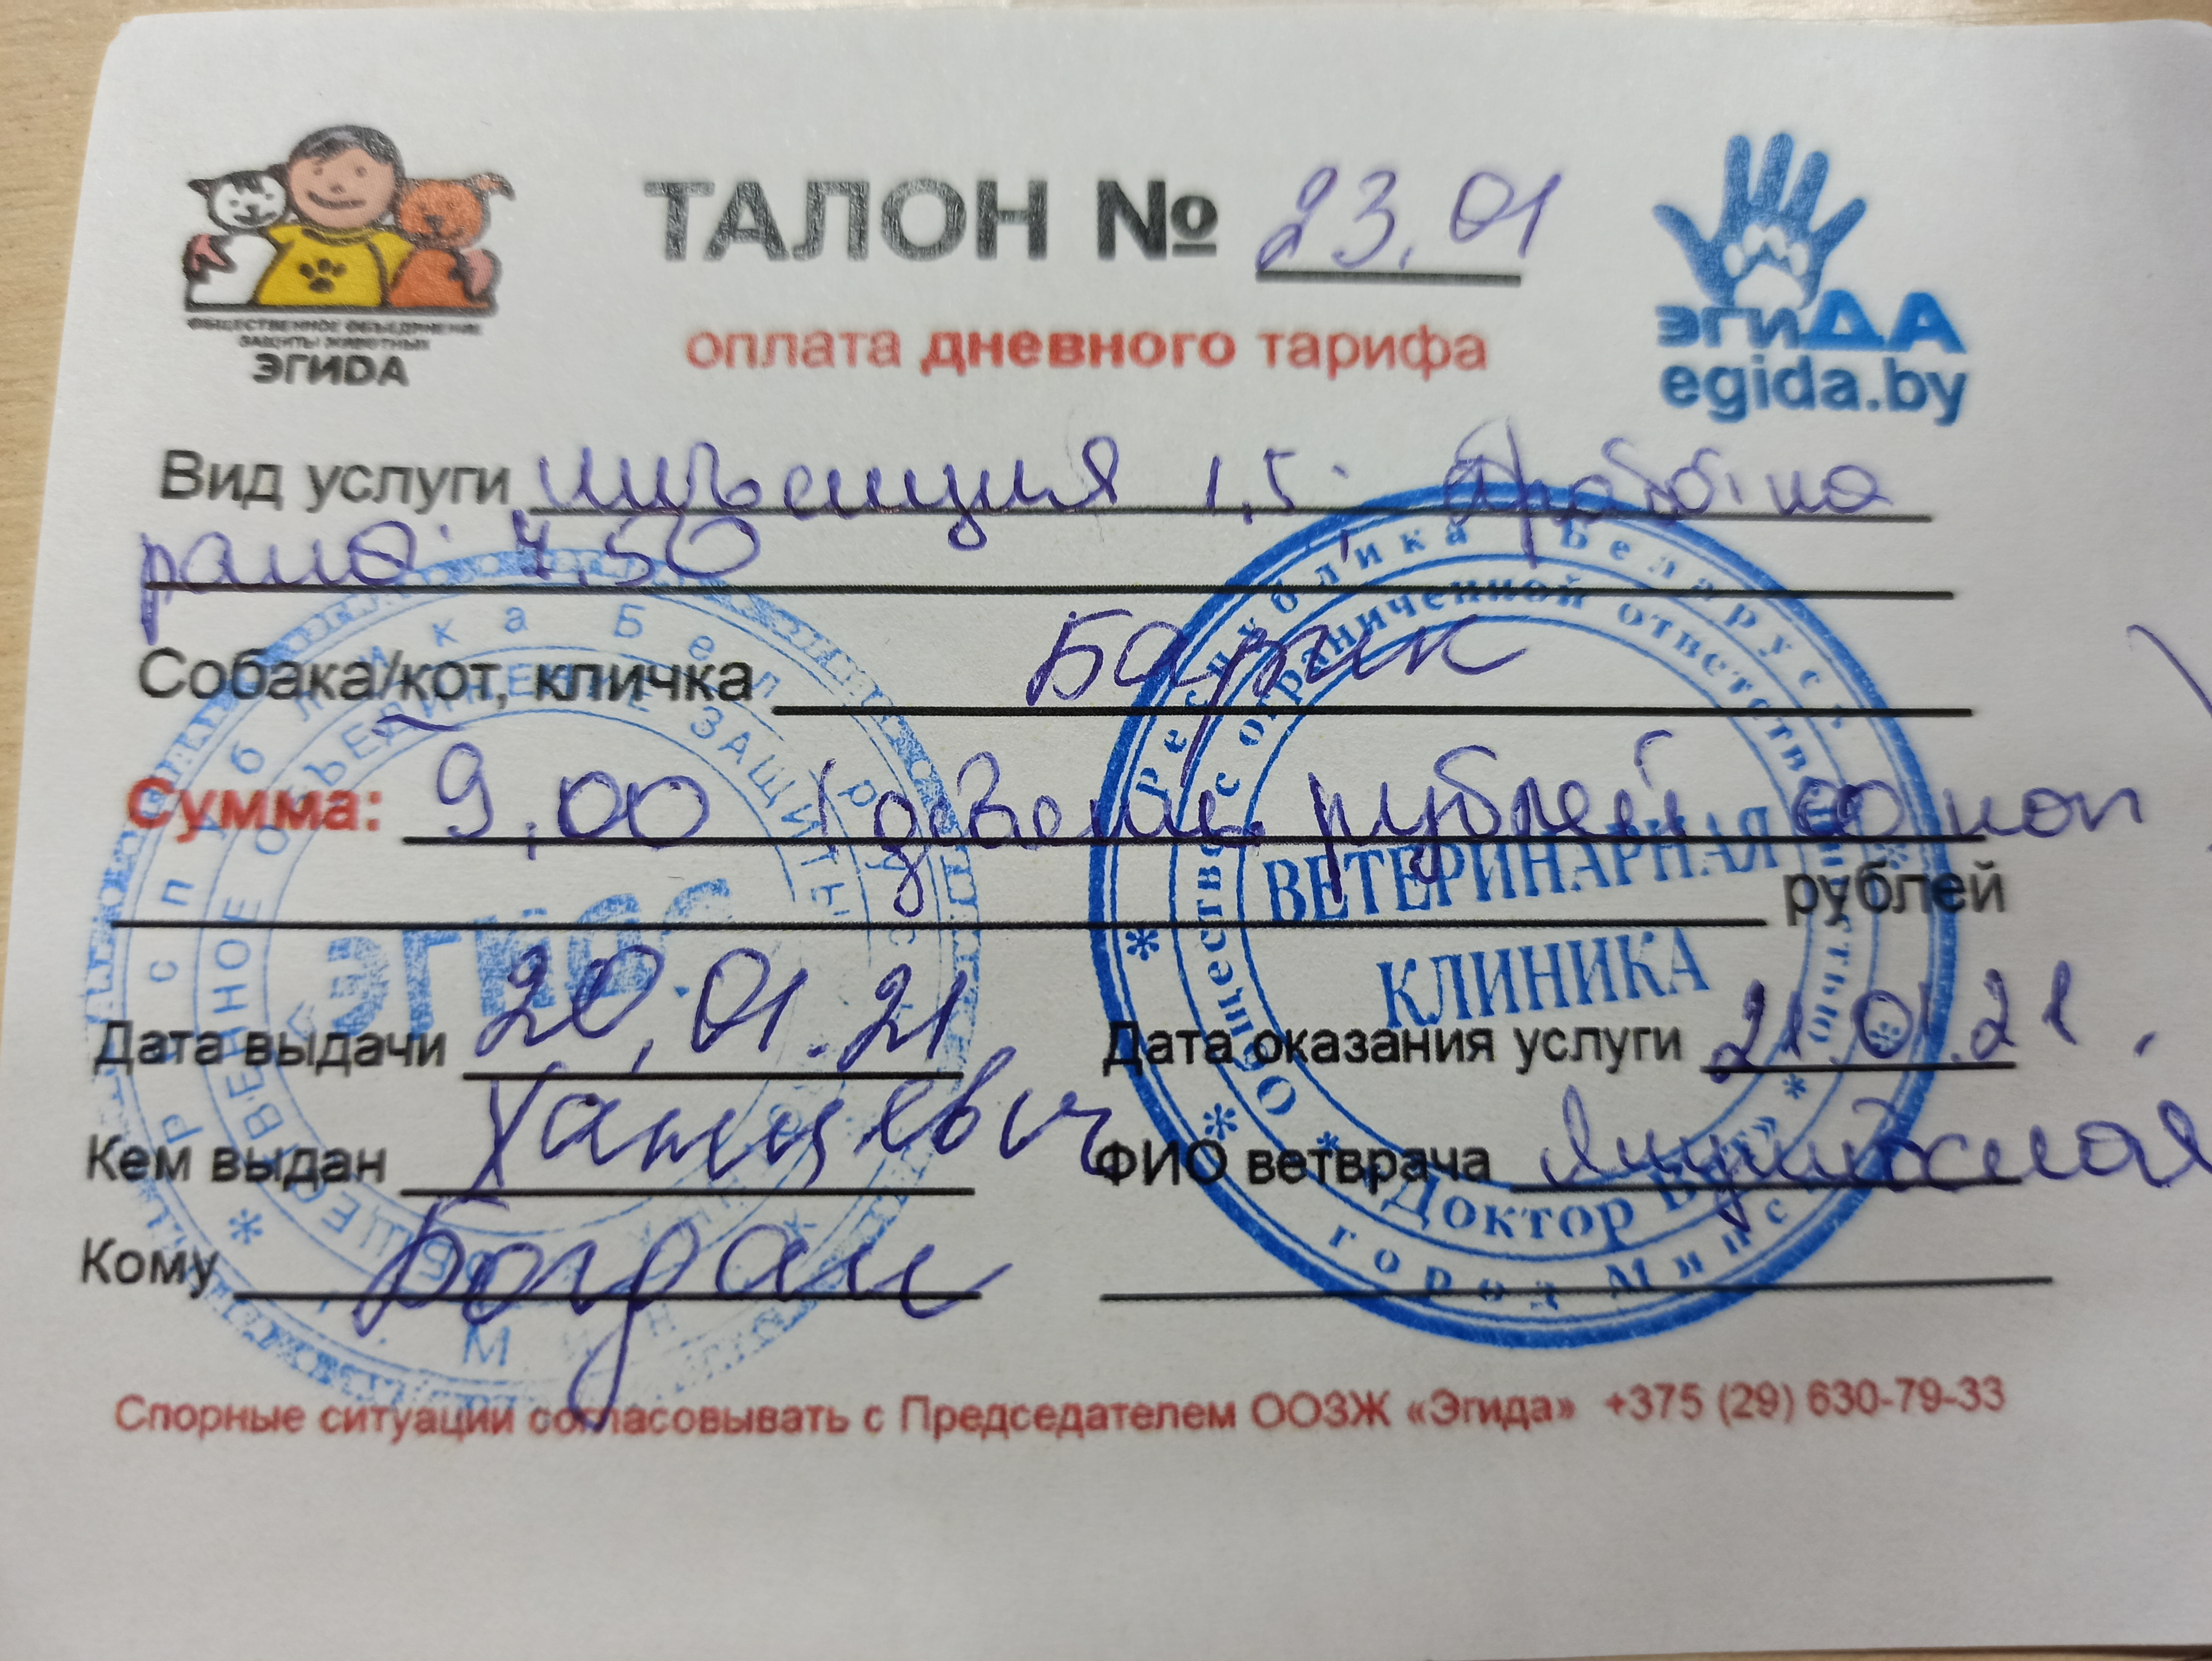 ТАЛОН № 23.01
оплата дневного тарифа
ОБЩЕСТВЕННОЕ ОБЪЕДИНЕНИЕ
ЗАЩИТЫ ЖИВОТНЫХ
ЭГИDА
эгиДА
egida.by
Вид услуги инъекция 1,5.
рана. 7,50
Собака/кот, кличка Барик
Сумма: 9,00 (девять рублей 00 коп
рублей
Дата выдачи 20.01.21 Дата оказания услуги 21.01.21.
Кем выдан Ханцевич ФИО ветврача
Кому Богдан
Спорные ситуации согласовывать с Председателем ООЗЖ «Эгида» +375 (29) 630-79-33
Республика Беларусь
Общество с ограниченной ответственностью
ВЕТЕРИНАРНАЯ
КЛИНИКА
город Минск